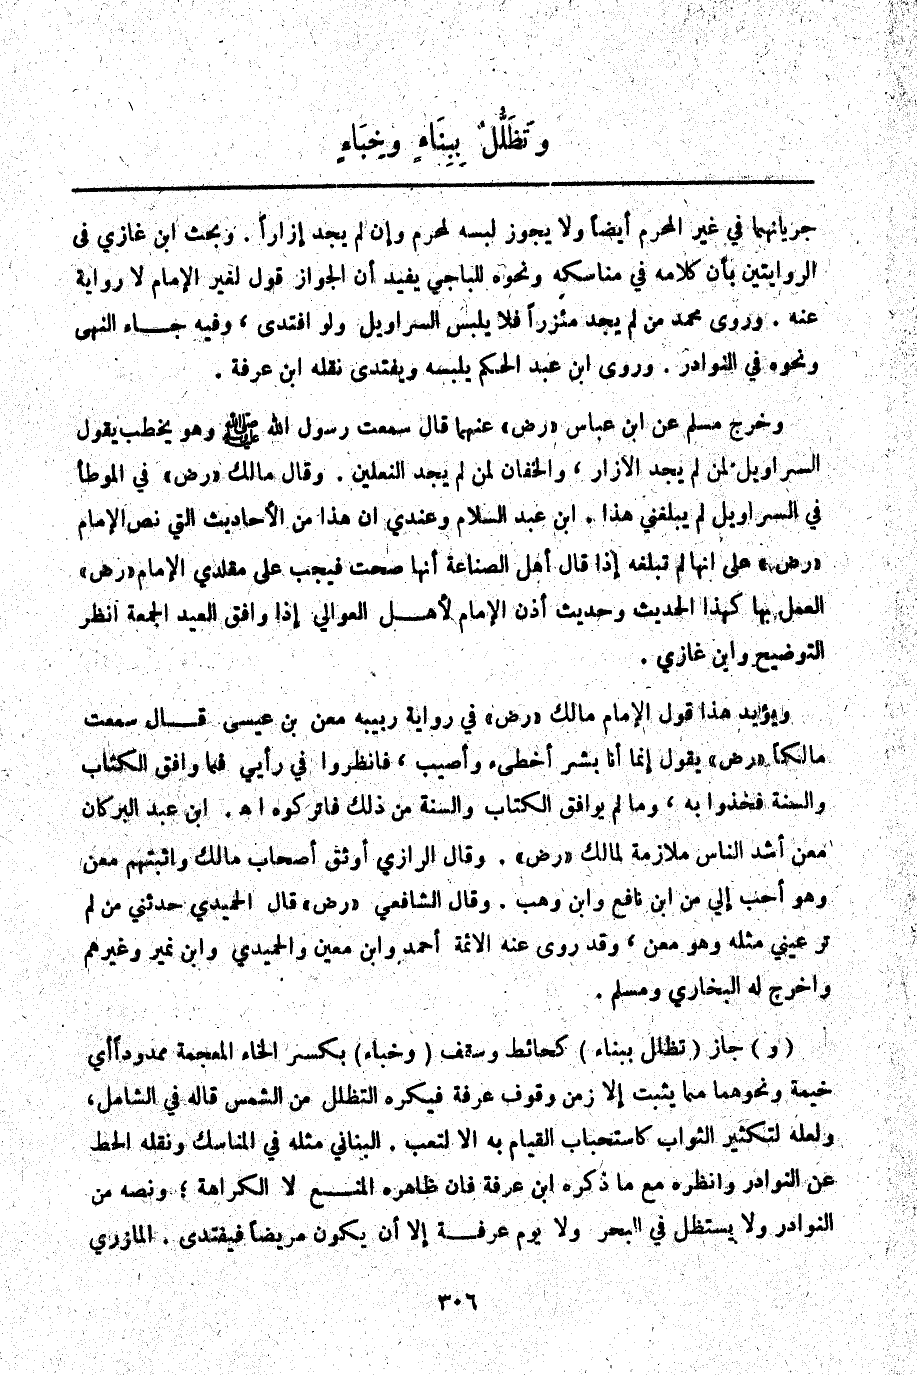 وَتَظَلُّلٌ بِبِنَاءٍ وَخِبَاءٍ
جريانهما في غير المحرم أيضاً ولا يجوز لبسه لمحرم وإن لم يجد إزاراً . وبحث ابن غازي فى
الروايتين بأن كلامه في مناسكه ونحوه للباجي يفيد أن الجواز قول لغير الإمام لا رواية
عنه . وروى محمد من لم يجد مئزراً فلا يلبس السراويل ولو افتدى ، وفيه جاء النهى
ونحوه في النوادر . وروى ابن عبد الحكم يلبسه ويفتدى نقله ابن عرفة .
وخرج مسلم عن ابن عباس «رض» عنهما قال سمعت رسول الله ﷺ وهو يخطب يقول
السراويل لمن لم يجد الازار ، والخفان لمن لم يجد النعلين . وقال مالك «رض» في الموطأ
في السراويل لم يبلغني هذا . ابن عبد السلام وعندي ان هذا من الأحاديث التي نص الإمام
«رض» على انها لم تبلغه إذا قال أهل الصناعة أنها صحت فيجب على مقلدي الإمام «رض»
العمل بها كهذا الحديث وحديث أذن الإمام لأهل العوالي إذا وافق العيد الجمعة انظر
التوضيح وابن غازي .
ويؤيد هذا قول الإمام مالك «رض» في رواية ربيبه معن بن عيسى قال سمعت
مالكاً «رض» يقول إنما أنا بشر أخطىء وأصيب ، فانظروا في رأيي فما وافق الكتاب
والسنة فخذوا به ، وما لم يوافق الكتاب والسنة من ذلك فاتركوه ا ه . ابن عبد البر كان
معن أشد الناس ملازمة لمالك «رض» . وقال الرازي أوثق أصحاب مالك واثبتهم معن
وهو أحب إلي من ابن نافع وابن وهب . وقال الشافعي «رض» قال الحميدي حدثني من لم
تر عيني مثله وهو معن ، وقد روى عنه الائمة أحمد وابن معين والحميدي وابن نمير وغيرهم
واخرج له البخاري ومسلم .
( و ) جاز ( تظلل ببناء ) كحائط وسقف ( وخباء) بكسر الخاء المعجمة ممدوداً أي
خيمة ونحوهما مما يثبت إلا زمن وقوف عرفة فيكره التظلل من الشمس قاله في الشامل،
ولعله لتكثير الثواب كاستحباب القيام به الا لتعب . البناني مثله في المناسك ونقله الحط
عن النوادر وانظره مع ما ذكره ابن عرفة فان ظاهره المنع لا الكراهة ؛ ونصه من
النوادر ولا يستظل في البحر ولا يوم عرفة إلا أن يكون مريضاً فيفتدى . المازري
٣٠٦